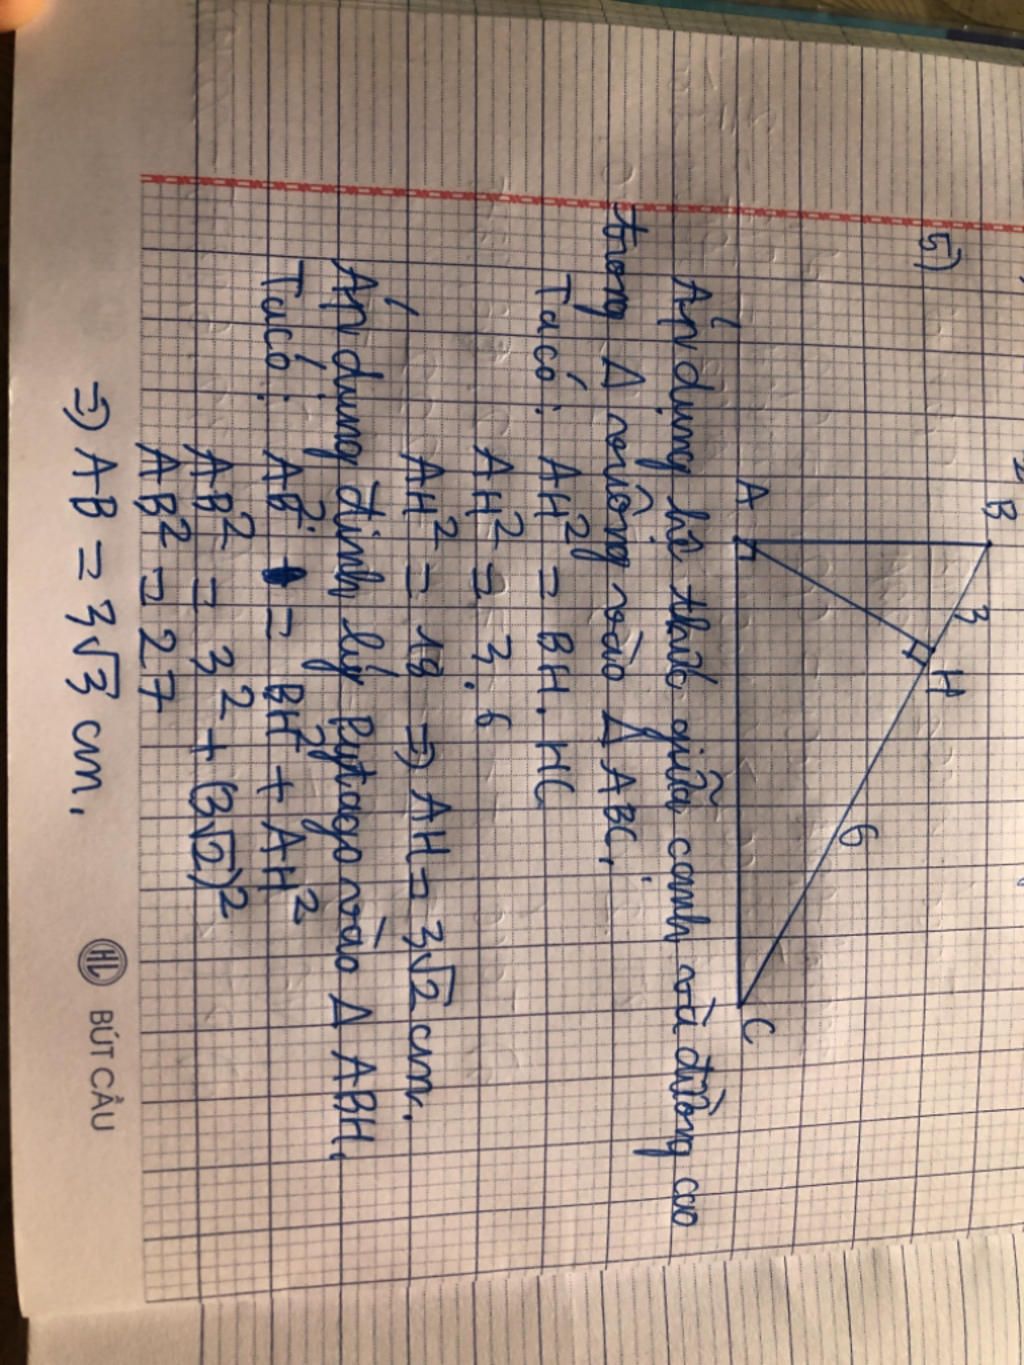 5)
B
3
H
6
A
C
Áp dụng hê thức giữa cạnh và đường cao
trong Δ vuông vào Δ ABC,
Ta có: AH² = BH . HC
AH² = 3 . 6
AH² = 18 ⇒ AH = 3√2 cm.
Áp dụng định lý Pytago vào Δ ABH,
Ta có: AB² = BH² + AH²
AB² = 3² + (3√2)²
AB² = 27
⇒ AB = 3√3 cm.
HL BÚT CẦU